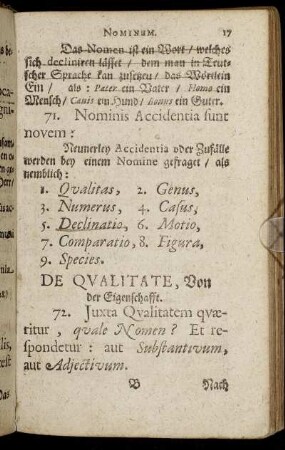 NOMINUM. 17
Das Nomen ist ein Wort / welches
sich decliniren lässet / dem man in Teut-
scher Sprache kan zusetzen / das Wörtlein
Ein / als: Pater ein Vater / Homo ein
Mensch / Canis ein Hund / Bonus ein Guter.
71. Nominis Accidentia sunt
novem:
Neunerley Accidentia oder Zufälle
werden bey einem Nomine gefraget / als
nemblich:
1. Qvalitas, 2. Genus,
3. Numerus, 4. Casus,
5. Declinatio, 6. Motio,
7. Comparatio, 8. Figura,
9. Species.
DE QVALITATE, Von
der Eigenschafft.
72. Juxta Qvalitatem quæ-
ritur, quale Nomen? Et re-
spondetur: aut Substantivum,
aut Adjectivum.
B Nach